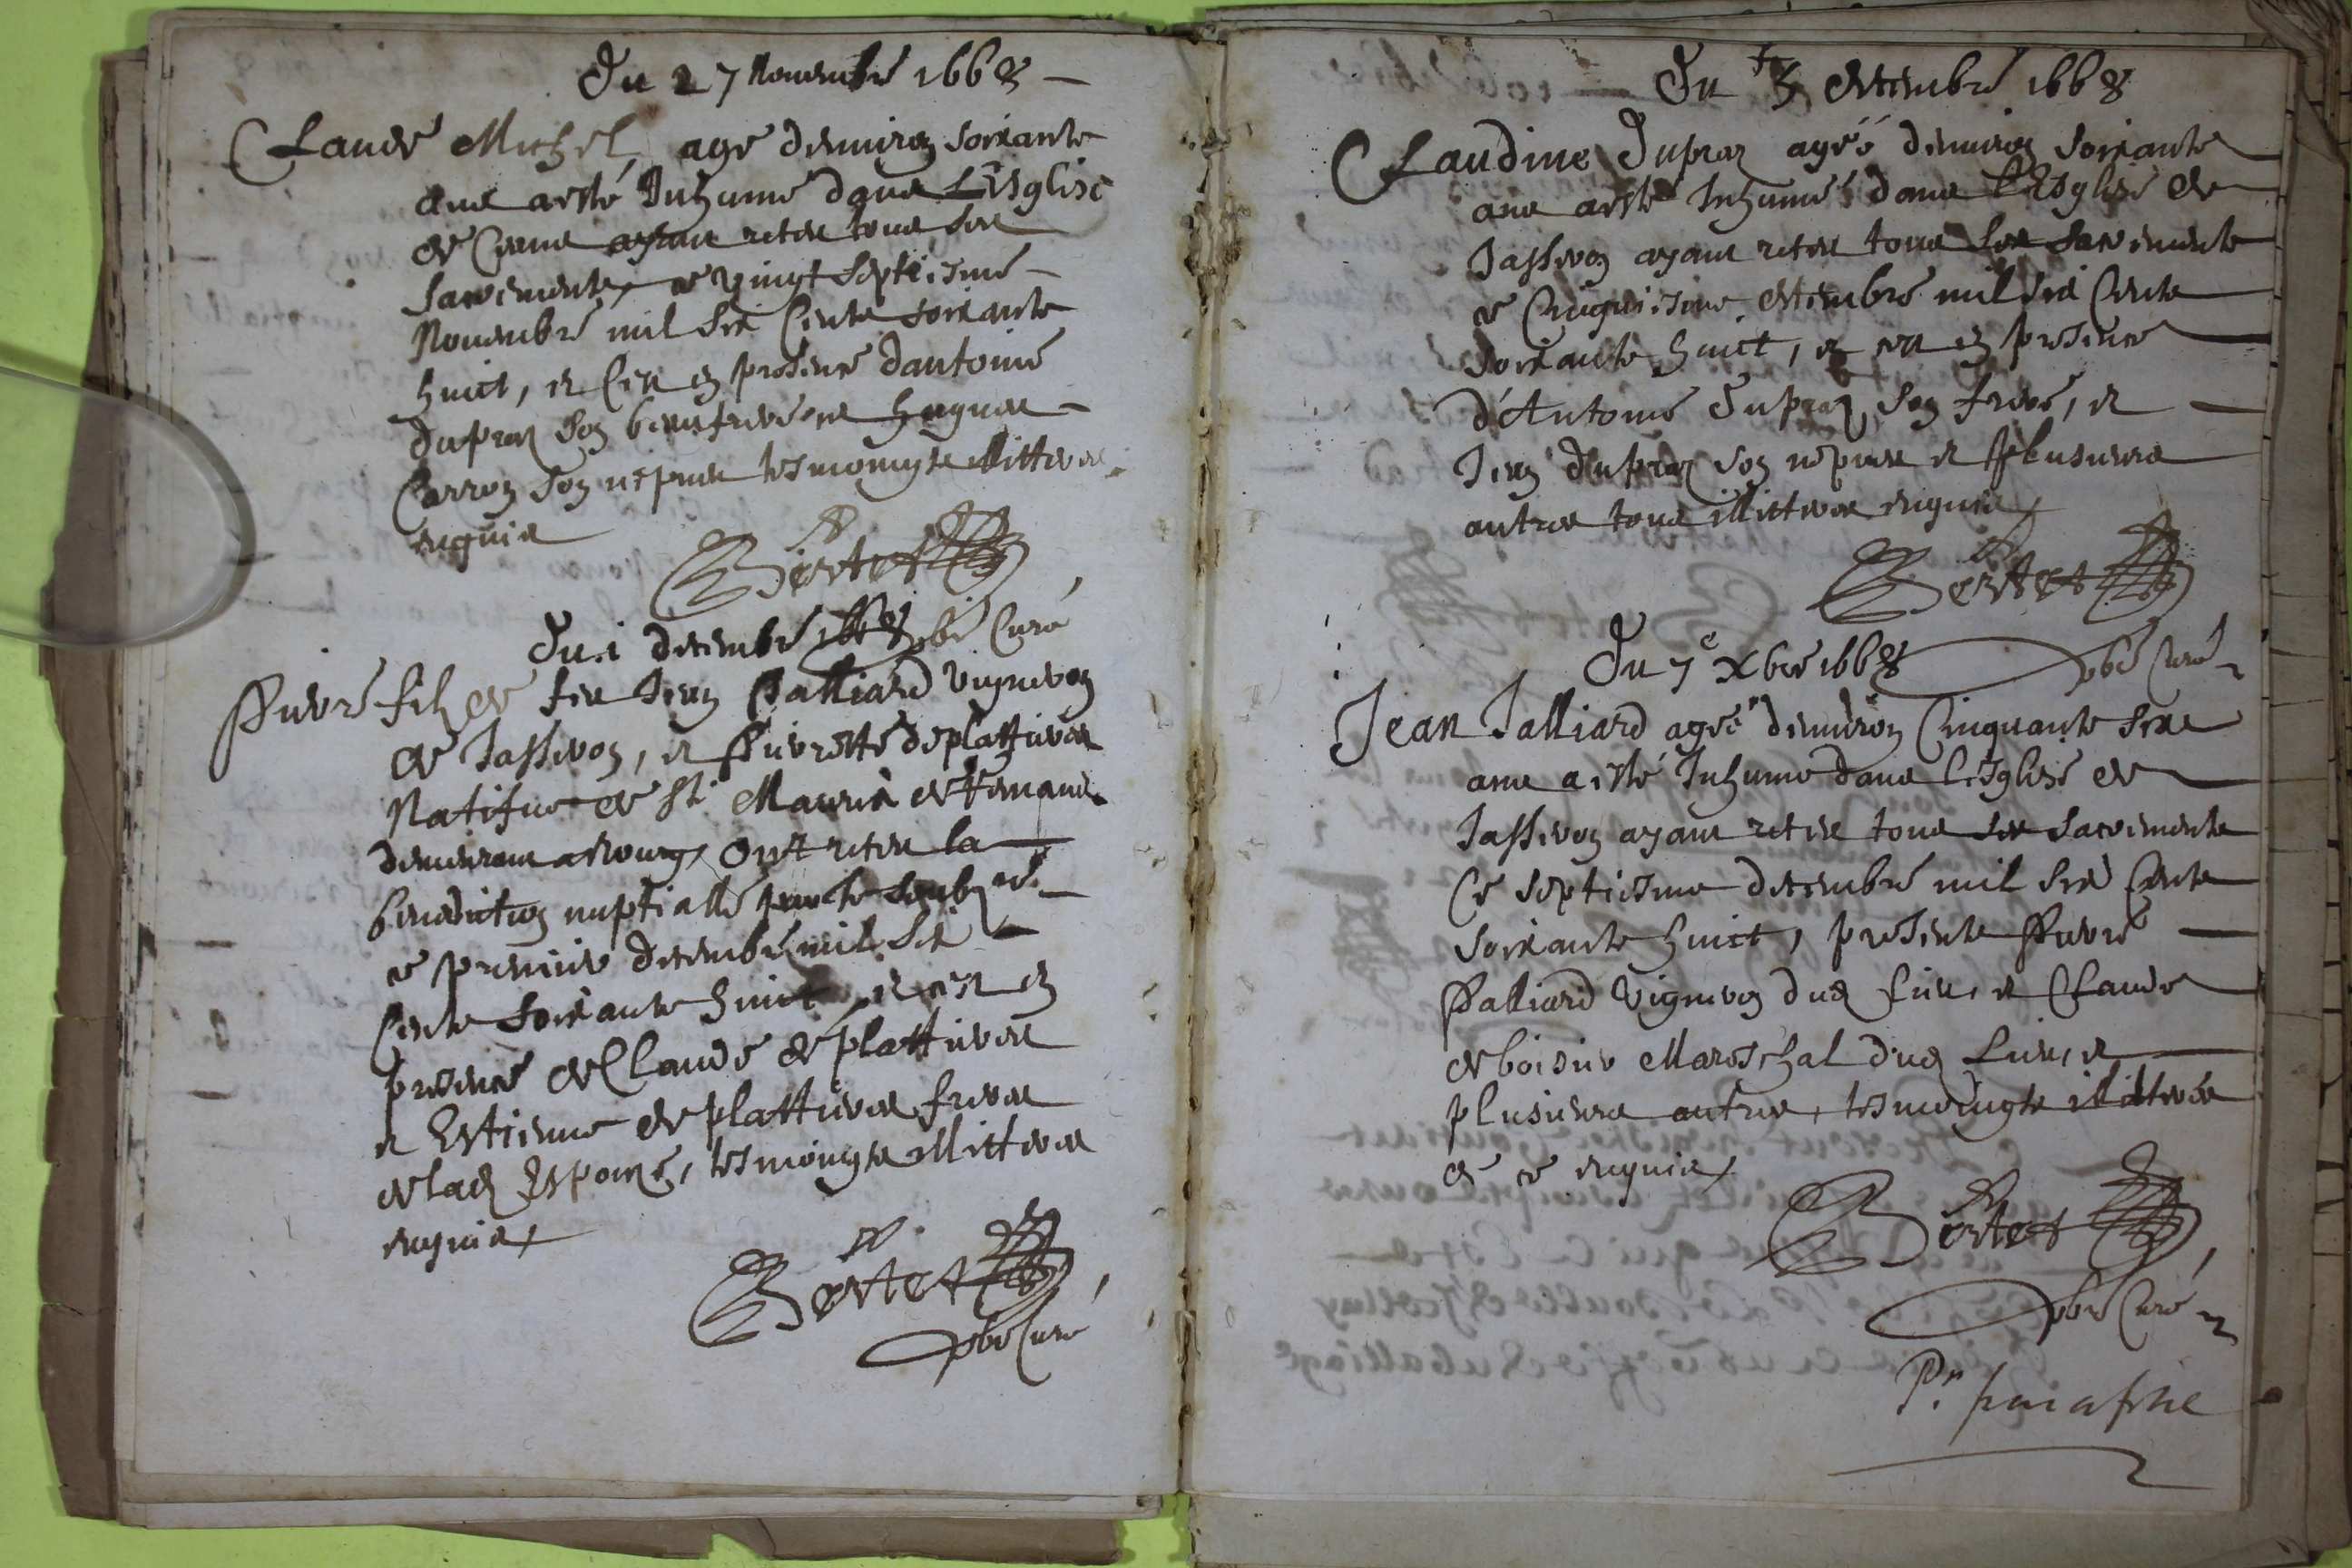 Du 27 Novembre 1668
Claude Michel, agé denuiron soixante
ans a esté Inhumé dans L'Esglise
de Crans ayant receu tous ses
sacrements, ce vingt septiesme
Novembre mil six Cents soixante
huict, et Ce en presence dantoine
dupraz son beaufrere et hugues
Carron son nepueu tesmoingts illitteres
enquis
Bertet
pbre Curé
Du 1 decembre 1668
Pierre fils de feu Jean Palliard Vigneron
de Jasseron, et Pierrette de plattieres
Natifue de St. Maurice
demeurant a bourg, Ont receu la
benediction nuptialle par le soubz né
ce premier decembre mil six
Cents soixante huict, et ce en
presence de Claude de plattieres
et Estienne de plattieres freres
de lad. Espouse, tesmoingts illitteres
enquis
Bertet
pbre Curé
Du 5 decembre 1668
Claudine Dupraz agéé denuiron soixante
ans a esté Inhumé dans l'Esglise de
Jasseron ayant receu tous ses sacrements
ce Cinquiesme decembre mil six Cents
soixante huict, et ce en presence
d'Antoine Dupraz son frere, et
Jean dupraz son nepueu et plusieurs
autres tous illitteres enquis
Bertet
pbre Curé
Du 7e Xbre 1668
Jean Palliard agéé denuiron Cinquante six
ans a esté Inhumé dans l'Esglise de
Jasseron ayant receu tous ses sacrements
Ce septiesme decembre mil six Cents
soixante huict, presents Pierre
Palliard Vigneron dud. Lieu, et Claude
de boisieu Mareschal dud. Lieu, et
plusieurs autres, tesmoingts illitteres
de ce enquis
Bertet
pbre Curé
Pr. paraphe